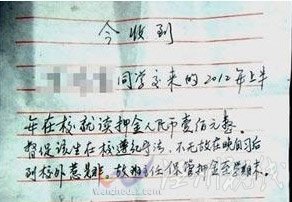 今收到
同学交来的2012年上半
年在校就读押金人民币壹佰元整。
督促该生在校遵纪守法，不无故在晚自习后
到校外惹是非。故班主任保管押金至学期末。